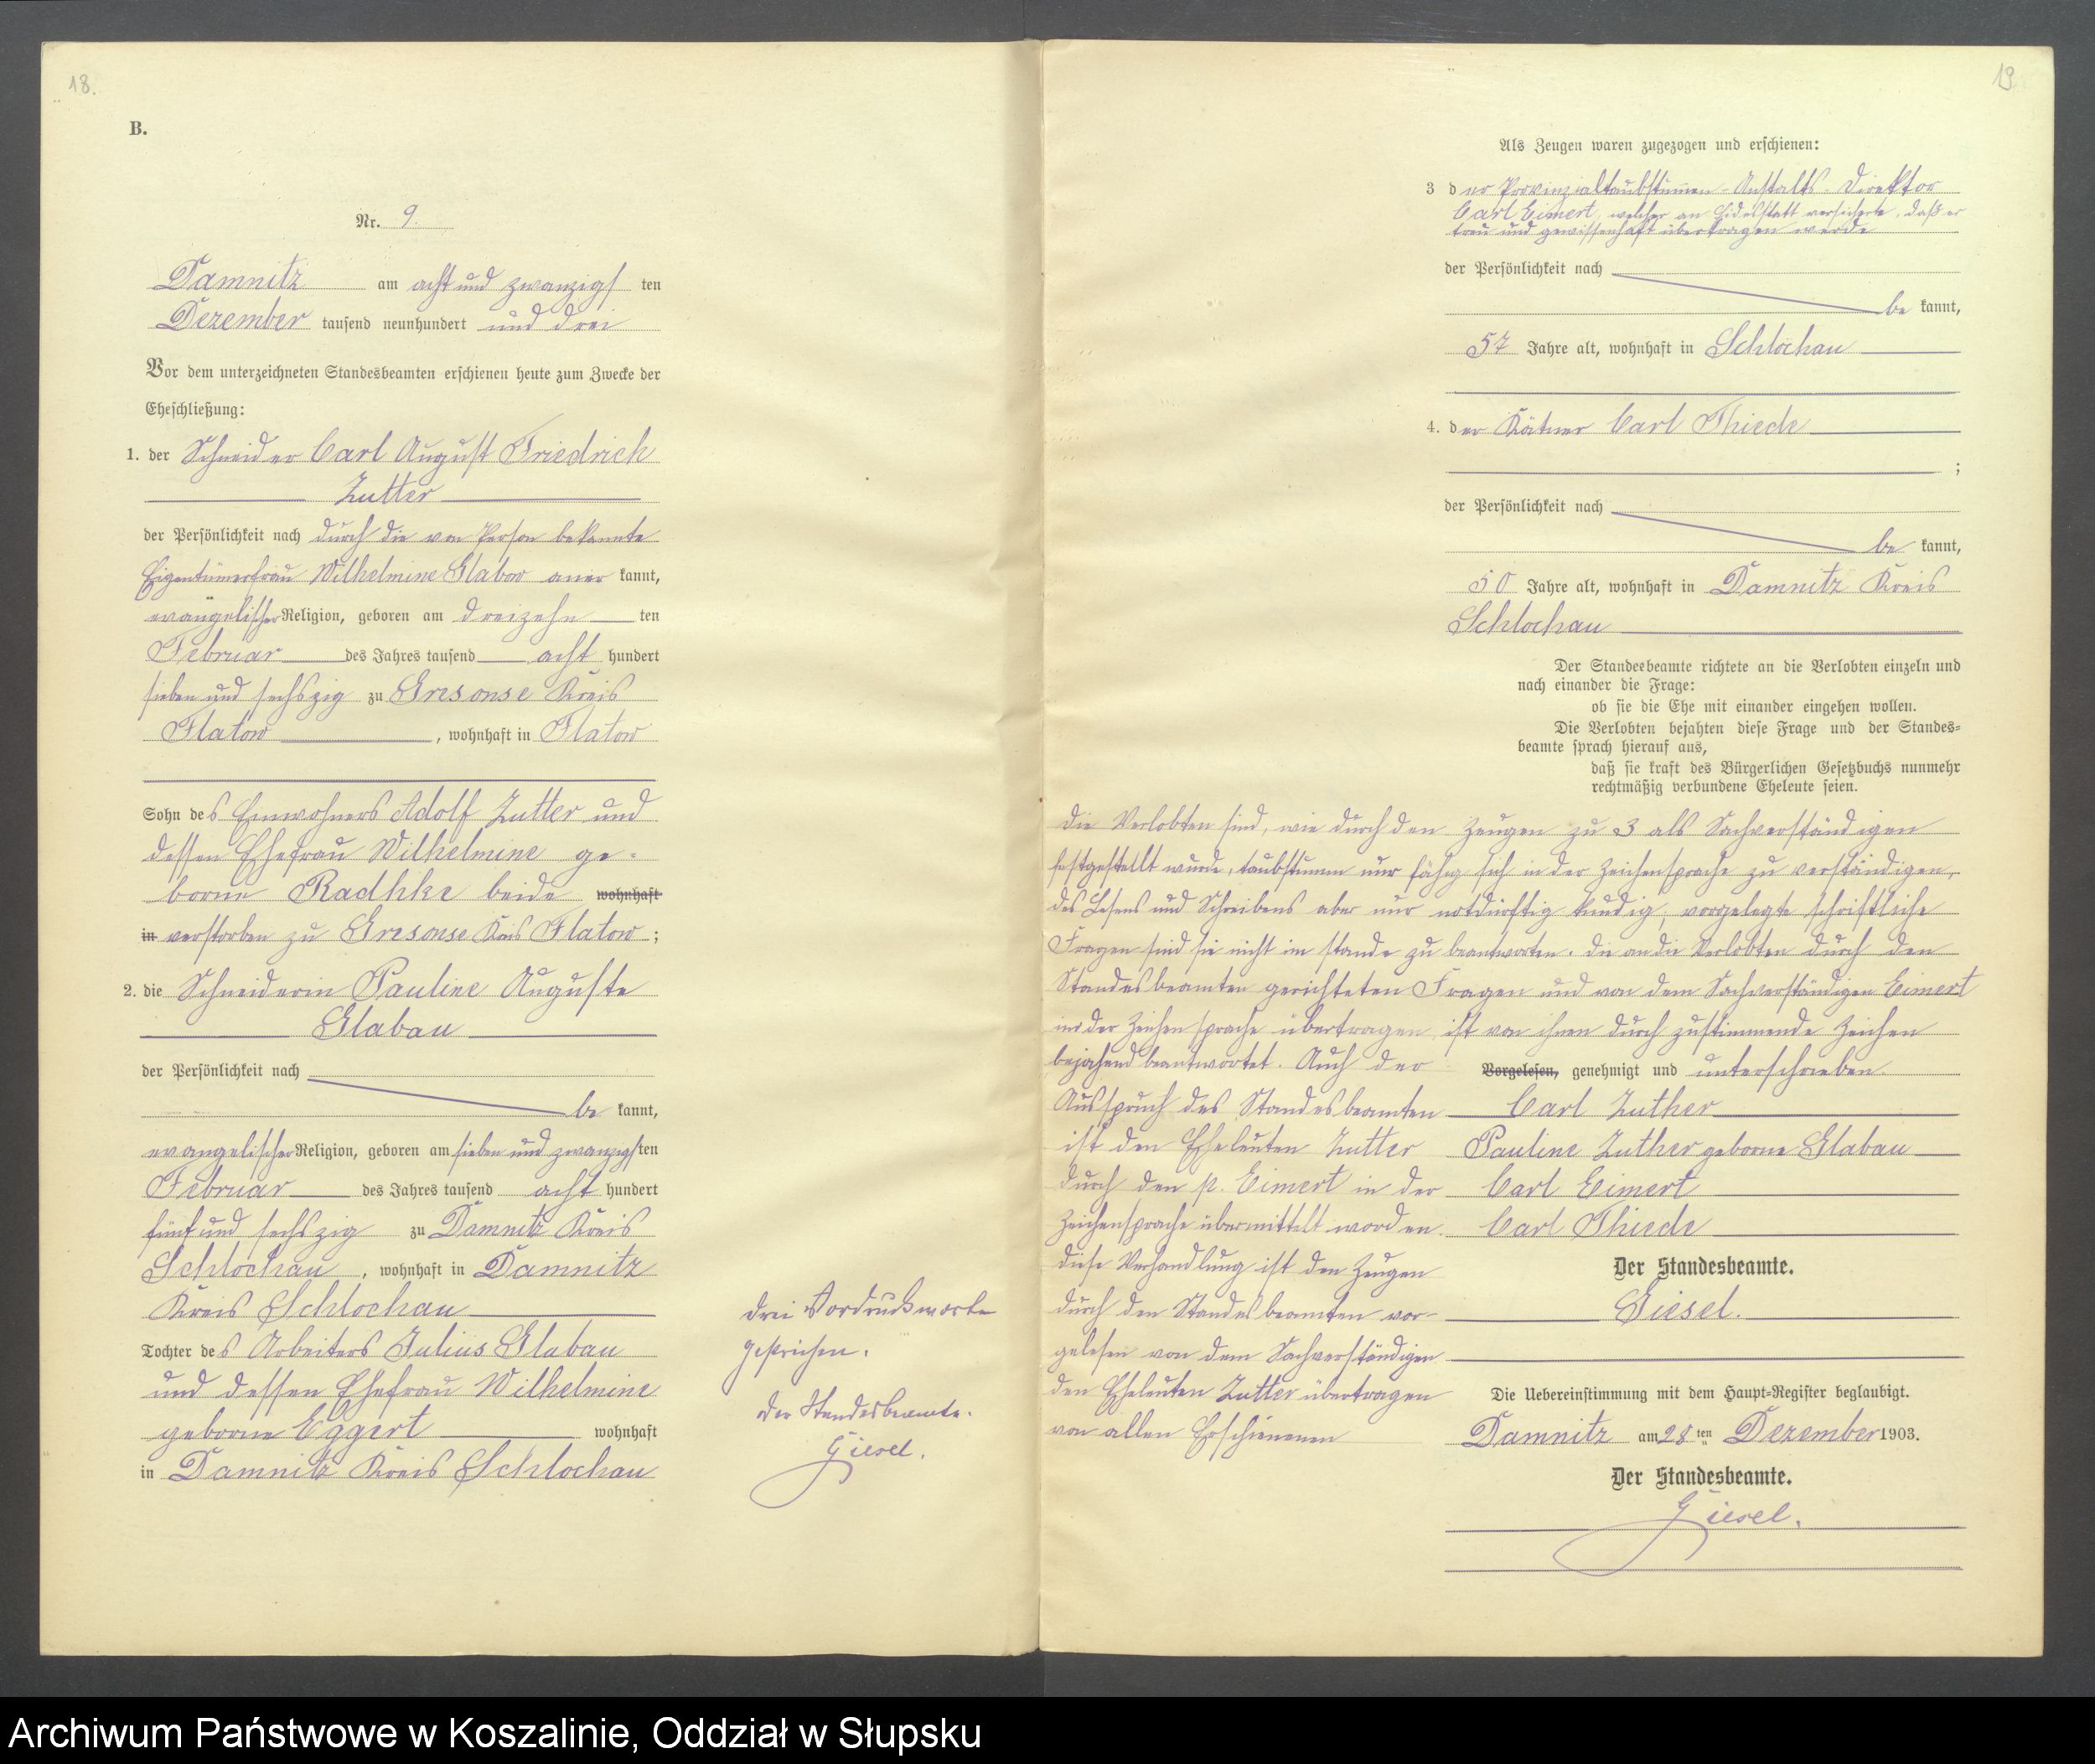 18.
B.
Nr. 9.
Damnitz am acht und zwanzigsten
Dezember tausend neunhundert und drei
Vor dem unterzeichneten Standesbeamten erschienen heute zum Zwecke der
Eheschließung:
1. der Schneider Carl August Friedrich
Zutter
der Persönlichkeit nach durch die von Person bekannte
Eigentümerfrau Wilhelmine Glabow aner kannt,
evangelischer Religion, geboren am dreizehn ten
Februar des Jahres tausend acht hundert
sieben und sechszig zu Gresonse Kreis
Flatow, wohnhaft in Flatow
Sohn des Einwohners Adolf Zutter und
dessen Ehefrau Wilhelmine ge-
borne Radhke beide wohnhaft
in verstorben zu Gresonse Kreis Flatow;
2. die Schneiderin Pauline Auguste
Glabau
der Persönlichkeit nach
be kannt,
evangelischer Religion, geboren am sieben und zwanzigsten
Februar des Jahres tausend acht hundert
fünf und sechszig zu Damnitz Kreis
Schlochau, wohnhaft in Damnitz
Kreis Schlochau
Tochter des Arbeiters Julius Glabau
und dessen Ehefrau Wilhelmine
geborne Eggert wohnhaft
in Damnitz Kreis Schlochau
drei Vordruckworte
gestrichen.
Der Standesbeamte.
Giesel.
19
Als Zeugen waren zugezogen und erschienen:
3 der Provinzialtaubstummen-Anstalts-Direktor
Carl Eimert, welcher an Eidesstatt versicherte, daß er
treu und gewissenhaft übertragen werde
der Persönlichkeit nach
be kannt,
57 Jahre alt, wohnhaft in Schlochau
4. der Kätner Carl Thiede
;
der Persönlichkeit nach
be kannt,
50 Jahre alt, wohnhaft in Damnitz Kreis
Schlochau
Der Standesbeamte richtete an die Verlobten einzeln und
nach einander die Frage:
ob sie die Ehe mit einander eingehen wollen.
Die Verlobten bejahten diese Frage und der Standes-
beamte sprach hierauf aus,
daß sie kraft des Bürgerlichen Gesetzbuchs nunmehr
rechtmäßig verbundene Eheleute seien.
Die Verlobten sind, wie durch den Zeugen zu 3 als Sachverständigen
festgestellt wurde, taubstumm nur fähig sich in der Zeichensprache zu verständigen,
des Lesens und Schreibens aber nur notdürftig kundig, vorgelegte schriftliche
Fragen sind sie nicht im stande zu beantworten. Die an die Verlobten durch den
Standesbeamten gerichteten Fragen und von dem Sachverständigen Eimert
in der Zeichensprache übertragen, ist von ihnen durch zustimmende Zeichen
bejahend beantwortet. Auch der
Ausspruch des Standesbeamten
ist den Eheleuten Zutter
durch den p. Eimert in der
Zeichensprache übermittelt worden.
Diese Verhandlung ist den Zeugen
durch den Standesbeamten vor-
gelesen von dem Sachverständigen
den Eheleuten Zutter übertragen
von allen Erschienenen
Vorgelesen, genehmigt und unterschrieben.
Carl Zuther
Pauline Zuther geborne Glabau
Carl Eimert
Carl Thiede
Der Standesbeamte.
Giesel.
Die Uebereinstimmung mit dem Haupt-Register beglaubigt.
Damnitz am 28 ten Dezember 1903.
Der Standesbeamte.
Giesel.
Archiwum Państwowe w Koszalinie, Oddział w Słupsku